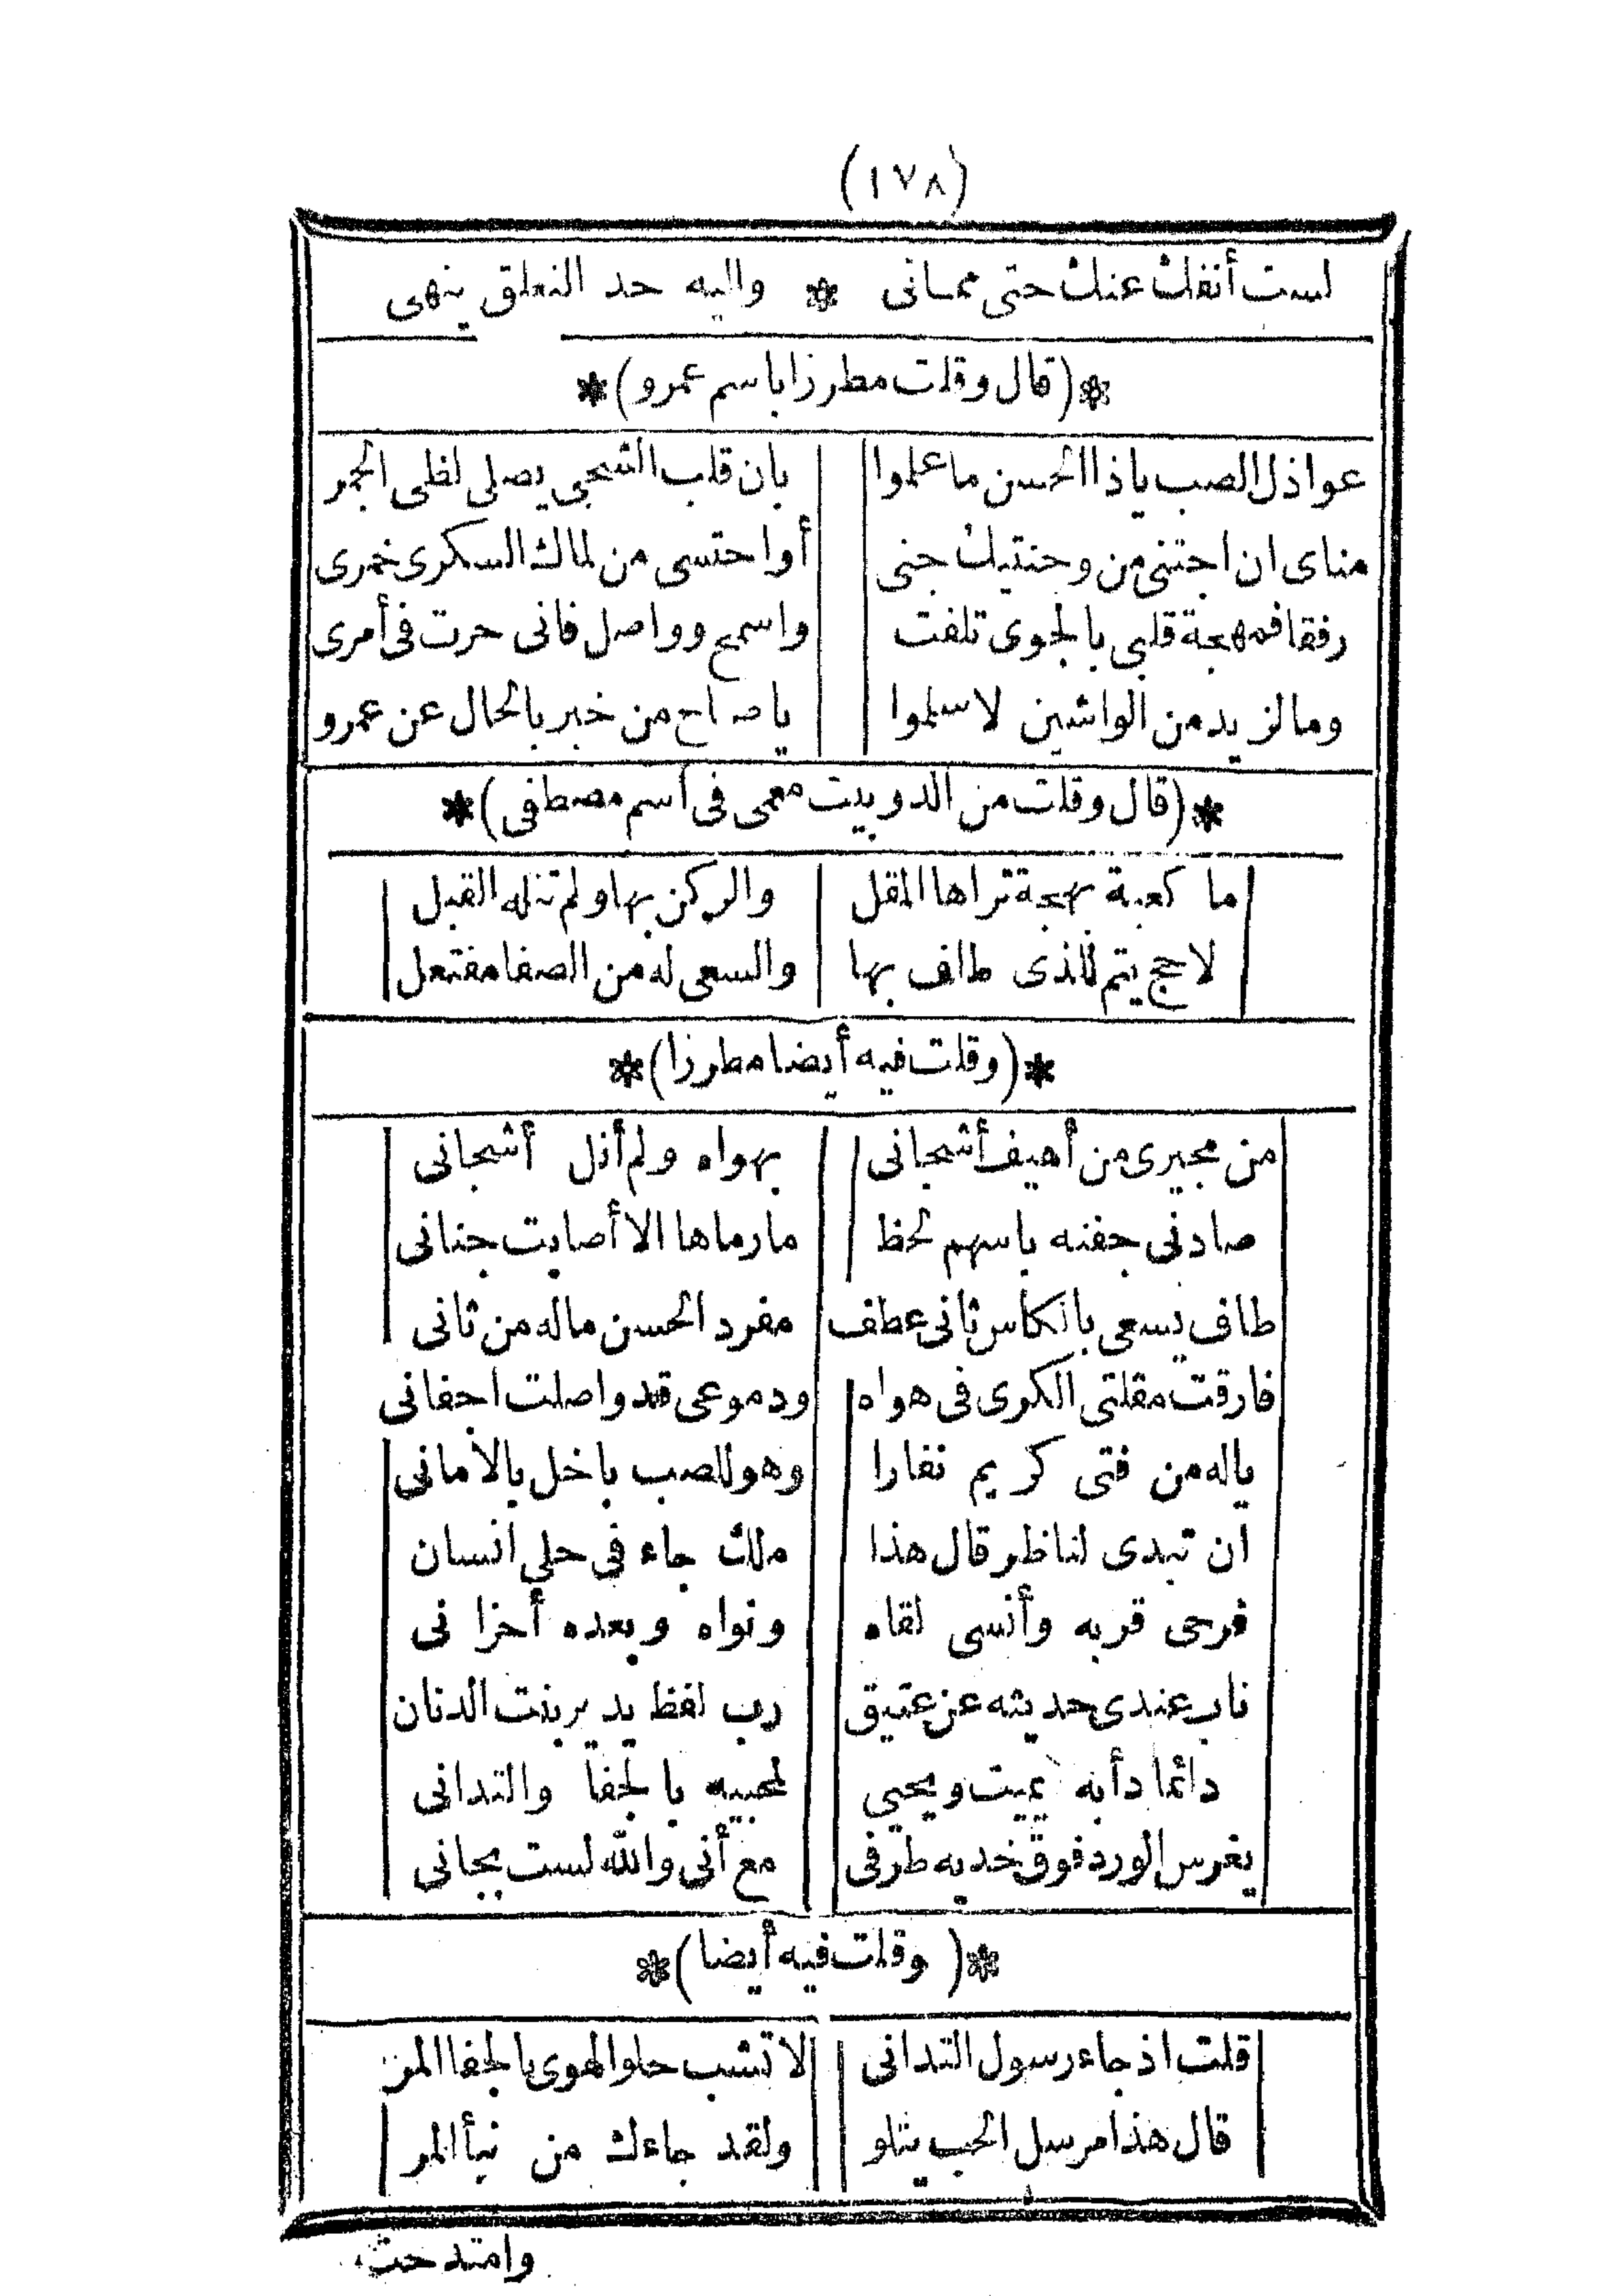 (١٧٨)
لست أنفك عنك حتى مماتى * واليه حد التعلق ينهى
*(قال وقلت مطرزا باسم عمرو)*
عواذل الصب ياذا الحسن ما علموا بان قلب الشجى يصلى لظى الجمر
مناى ان اجتنى من وجنتيك جنى أو احتسى من لماك السكرى خمرى
رفقا فمهجة قلبى بالجوى تلفت واسمح وواصل فانى حرت فى أمرى
وما لزيد من الواشين لا سلموا يا صاح من خبر بالحال عن عمرو
*(قال وقلت من الدوبيت معمى فى اسم مصطفى)*
ما كعبة بهجة تراها المقل والركن بها ولم تنله القبل
لا حج يتم للذى طاف بها والسعى له من الصفا مفتعل
*(وقلت فيه أيضا مطرزا)*
من مجيرى من أهيف أشجانى بهواه ولم أنل أشجانى
صادنى جفنه باسهم لحظ ما رماها الا أصابت جنانى
طاف يسعى بالكاس ثانى عطف مفرد الحسن ماله من ثانى
فارقت مقلتى الكرى فى هواه ودموعى قد واصلت اجفانى
ياله من فتى كريم نفارا وهو للصب باخل بالامانى
ان تبدى لناظر قال هذا ملك جاء فى حلى انسان
فرحى قربه وأنسى لقاه ونواه وبعده أحزانى
ناب عندى حديثه عن عتيق رب لفظ يدير بنت الدنان
دائما دأبه يميت ويحيي لمحبيه بالجفا والتدانى
يغرس الورد فوق خديه طرفى مع أنى والله لست بجانى
*(وقلت فيه أيضا)*
قلت اذ جاء رسول التدانى لا تشب حلو الهوى بالجفا المر
قال هذا مرسل الحب يتلو ولقد جاءك من نبأ المر
وامتدحت